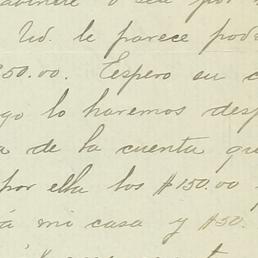 o sea por
Ud. le parece pod
50.00. Espero su c
go lo haremos desp
a de la cuenta qu
por ella los $150.00
á mi casa y $50.